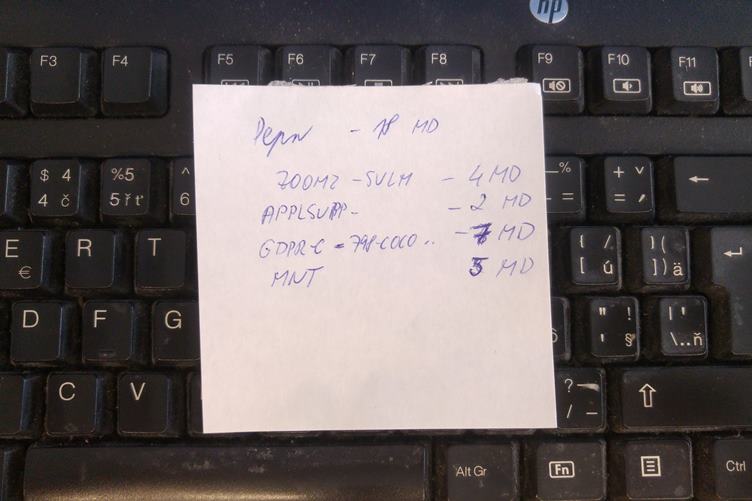 hp
F3 F4 F5 F6 F7 F8 F9 F10 F11
Pepa - 18 MD
ZOOM2 - SVLM - 4 MD
APPLSUPP - - 2 MD
GDPR-C = 798-COCO .. - 7 MD
MNT 5 MD
$ 4 %5 6 - % = + ˇ
4 č 5 ř ť
E € R T { / [ ú )( ]) ä
D F G " ! ' § | ' \ .. ň
C V ? - / -
Alt Gr Fn Ctrl